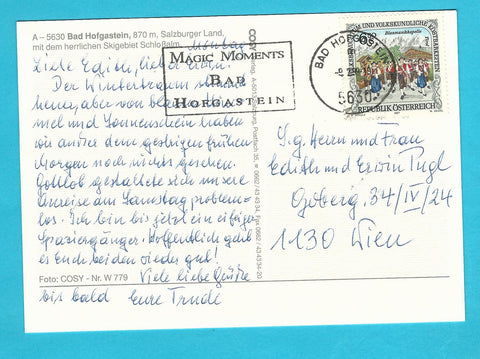 A – 5630 Bad Hofgastein, 870 m, Salzburger Land,
mit dem herrlichen Skigebiet Schloßalm
Montag
Liebe Edith, lieber Erwin!
Der Wintertraum
aber von blauem Him-
mel und Sonnenschein haben
wir außer dem gestrigen frühen
Morgen noch nichts gesehen.
Gottlob gestaltete sich unsere
Anreise am Samstag problem-
los. Ich bin bis jetzt ein eifriger
Spaziergänger. Hoffentlich geht
es Euch beiden wieder gut!
Viele liebe Grüße
bis bald Eure Trude
Foto: COSY - Nr. W 779
COSY
Postfach 35, 0662 / 43 43 34, Fax 0662 / 43 43 34-20
MAGIC MOMENTS
BAD
HOFGASTEIN
BAD HOFGASTEIN
5630
UND VOLKSKUNDLICHE
REPUBLIK ÖSTERREICH
S.g. Herrn und Frau
Edith und Erwin
34/IV/24
1130 Wien